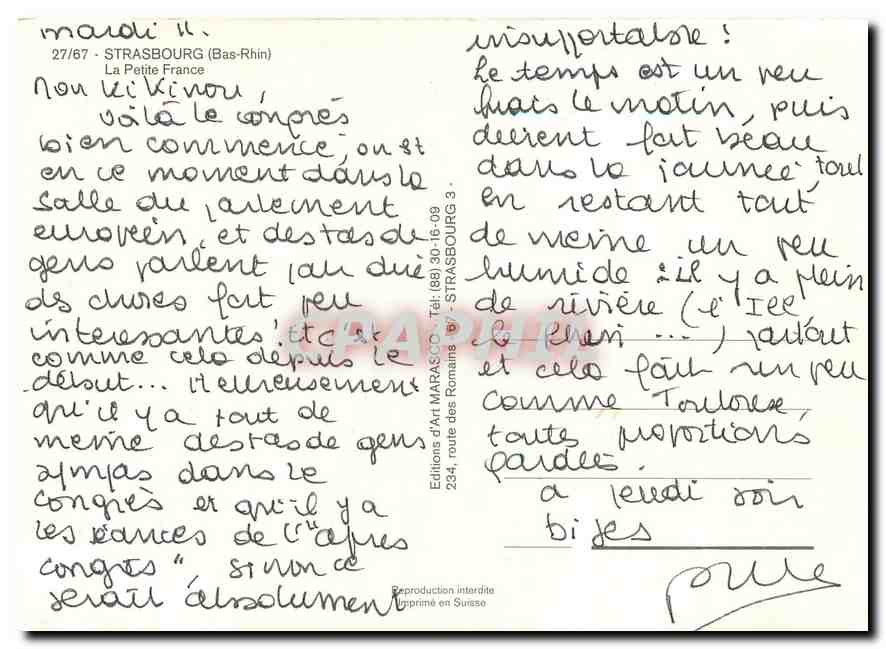 mardi 11.
27/67 - STRASBOURG (Bas-Rhin)
La Petite France
Mon Kikinou,
voilà le congrès
bien commencé, on est
en ce moment dans la
salle du parlement
européen, et des tas de
gens parlent pour dire
des choses fort peu
interessantes ! Et c'est
comme cela depuis le
début... Heureusement
qu'il y a tout de
meme des tas de gens
sympas dans le
congrès et qu'il y a
les séances de l'"après
congrès", sinon ce
serait absolument
insupportable !
Le temps est un peu
frais le matin, puis
devient fort beau
dans la journée, tout
en restant tout
de meme un peu
humide : il y a plein
de rivière (l'Ill
le Rhin ...) partout
et cela fait un peu
comme Toulouse,
toutes proportions
gardées.
a jeudi soir
bises
Editions d'Art MARASCO - Tél: (88) 30-16-09
234, route des Romains - 67 - STRASBOURG 3 -
Reproduction interdite
Imprimé en Suisse
CPAPHIL